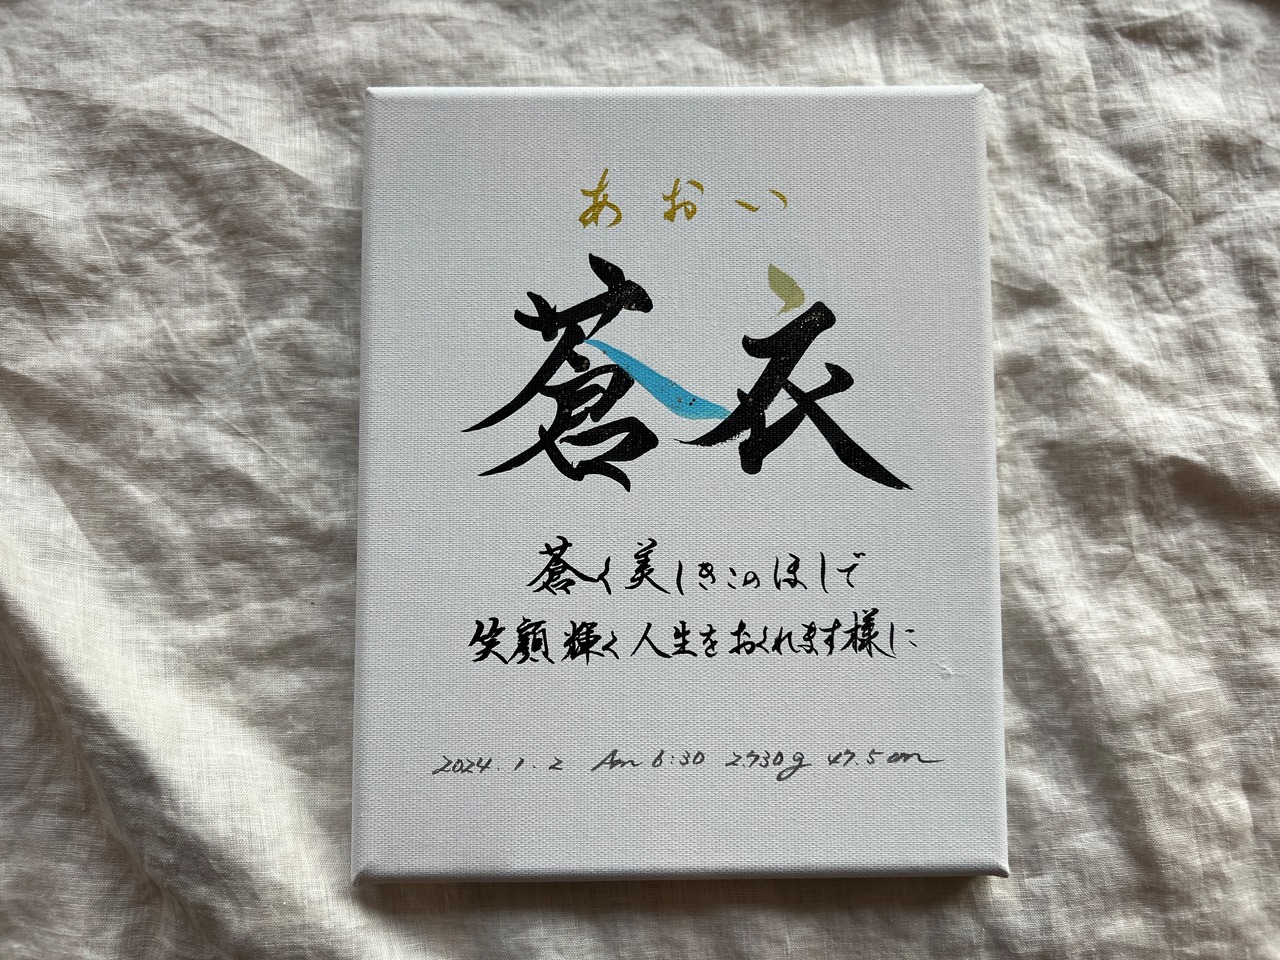 あおい
蒼衣
蒼く美しきこのほしで
笑顔輝く人生をおくれます様に
2024.1.2 Am 6:30 2730g 47.5cm